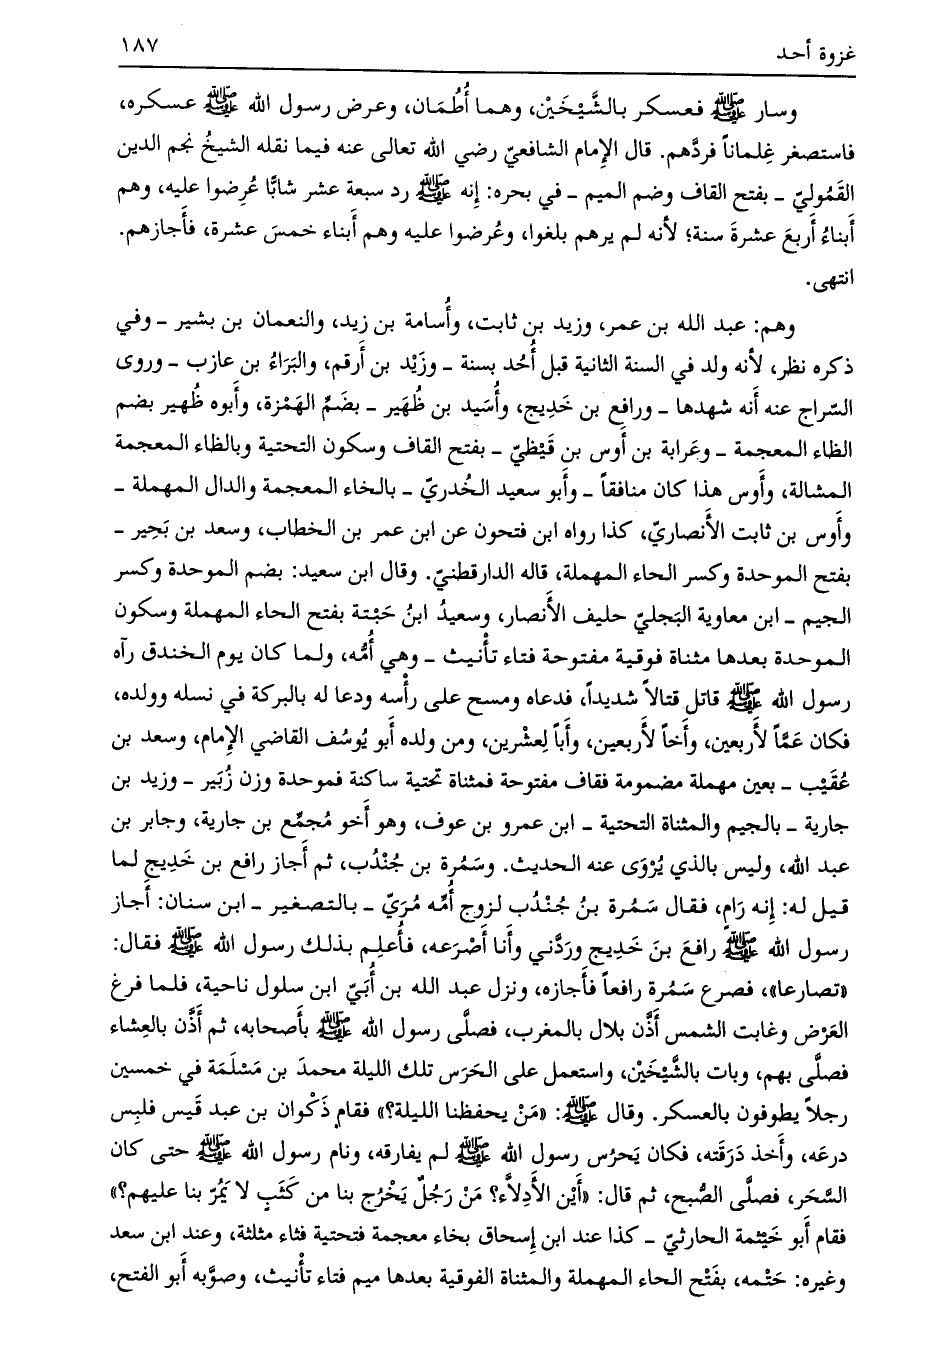 غزوة أحد
١٨٧
وسار ﷺ فعسكر بالشَّيْخَيْن، وهما أُطُمَان، وعرض رسول الله ﷺ عسكره،
فاستصغر غِلماناً فردَّهم. قال الإمام الشافعيّ رضي الله تعالى عنه فيما نقله الشيخُ نجم الدين
القَمُوليّ ـ بفتح القاف وضم الميم ـ في بحره: إنه ﷺ رد سبعة عشر شابًّا عُرِضوا عليه، وهم
أبناءُ أربعَ عشرةَ سنة؛ لأنه لم يرهم بلغوا، وعُرضوا عليه وهم أبناء خمسَ عشرة، فأجازهم.
انتهى.
وهم: عبد الله بن عمر، وزيد بن ثابت، وأُسامة بن زيد، والنعمان بن بشير ـ وفي
ذكره نظر، لأنه ولد في السنة الثانية قبل أُحُد بسنة ـ وزَيْد بن أرقم، والبَرَاءُ بن عازب ـ وروى
السّراج عنه أنه شهدها ـ ورافع بن خَدِيج، وأُسَيد بن ظُهَير ـ بضَمِّ الهَمْزة، وأبوه ظُهير بضم
الظاء المعجمة ـ وعَرابة بن أوس بن قَيْظيّ ـ بفتح القاف وسكون التحتية وبالظاء المعجمة
المشالة، وأَوس هذا كان منافقاً ـ وأَبو سعيد الخُدريّ ـ بالخاء المعجمة والدال المهملة ـ
وأَوس بن ثابت الأَنصاريّ، كذا رواه ابن فتحون عن ابن عمر بن الخطاب، وسعد بن بَحِير ـ
بفتح الموحدة وكسر الحاء المهملة، قاله الدارقطنيّ. وقال ابن سعيد: بضم الموحدة وكسر
الجيم ـ ابن معاوية البَجليّ حليف الأَنصار، وسعيدُ ابنُ حَبْتة بفتح الحاء المهملة وسكون
الموحدة بعدها مثناة فوقية مفتوحة فتاء تأْنيث ـ وهي أُمُّه، ولما كان يوم الخندق رآه
رسول الله ﷺ قاتل قتالاً شديداً، فدعاه ومسح على رأْسه ودعا له بالبركة في نسله وولده،
فكان عَمَّاً لأَربعين، وأَخاً لأَربعين، وأَباً لِعشْرين، ومن ولده أَبو يوُسُف القاضي الإمام، وسعد بن
عُقَيْب ـ بعين مهملة مضمومة فقاف مفتوحة فمثناة تحتية ساكنة فموحدة وزن زُبَير ـ وزيد بن
جارية ـ بالجيم والمثناة التحتية ـ ابن عمرو بن عوف، وهو أَخو مُجمِّع بن جارية، وجابر بن
عبد الله، وليس بالذي يُرْوَى عنه الحديث. وسَمُرة بن جُنْدُب، ثم أَجاز رافع بن خَدِيج لما
قيل له: إنه رَامٍ، فقال سَمُرة بنُ جُنْدُب لزوج أُمِّه مُرَيّ ـ بالتصغير ـ ابن سنان: أَجاز
رسول الله ﷺ رافعَ بنَ خَدِيج وردَّني وأَنا أَصْرَعه، فأُعلِم بذلك رسول الله ﷺ فقال:
«تصارعا»، فصرع سَمُرة رافعاً فأَجازه، ونزل عبد الله بن أُبَيّ ابن سلول ناحية، فلما فرغ
العَرْض وغابت الشمس أَذَّن بلال بالمغرب، فصلَّى رسول الله ﷺ بأَصحابه، ثم أَذَّن بالعِشاء
فصلَّى بهم، وبات بالشَّيْخَيْن، واستعمل على الحَرَس تلك الليلة محمدَ بن مَسْلَمة في خمسين
رجلاً يطوفون بالعسكر. وقال ﷺ: «مَنْ يحفظنا الليلة؟» فقام ذَكْوان بن عبد قَيس فلبِس
درعَه، وأَخذ دَرَقَته، فكان يَحرُس رسول الله ﷺ لم يفارقه، ونام رسول الله ﷺ حتى كان
السَّحَر، فصلَّى الصُّبح، ثم قال: «أَيْن الأَدِلاَّء؟ مَنْ رَجُلٌ يَخْرُج بنا من كَثَبٍ لا يَمُرّ بنا عليهم؟»
فقام أَبو خَيْثمة الحارثيّ ـ كذا عند ابن إسحاق بخاء معجمة فتحتية فثاء مثلثة، وعند ابن سعد
وغيره: حَتْمه، بفَتْح الحاء المهملة والمثناة الفوقية بعدها ميم فتاء تأْنيث، وصوَّبه أَبو الفتح،